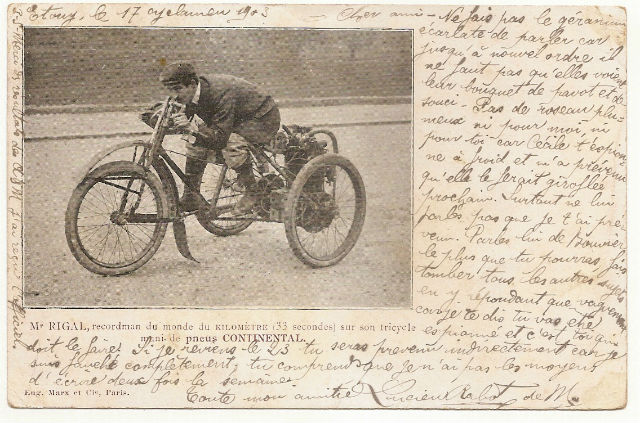 Etouy, le 17 cyclamen 1903
Cher ami - Ne fais pas le géranium
écarlate de parler car
jusqu'à nouvel ordre il
ne faut pas qu'elles voient
leur bouquet de pavot et de
souci - Pas de roseau plu-
meux ni pour moi, ni
pour toi car Cécile t'espion-
ne à froid et m'a prévenu
qu'elle le ferait giroflée
prochain. Surtout ne lui
parles pas que je t'ai pré-
venu. Parles-lui de
le plus que tu pourras, fais
tomber tous les autres sujets
en y répondant que vaguement
car je te dis tu vas être
espionné et c'est toi qui
Mr RIGAL, recordman du monde du KILOMÈTRE (33 secondes) sur son tricycle
muni de pneus CONTINENTAL.
doit le faire! Si je reviens le 23 tu seras prévenu indirectement car je
suis complètement, tu comprends que je n'ai pas les moyens
d'écrire deux fois la semaine.
Toute mon amitié Lucien Rabot de M.
Eug. Marx et Cie, Paris.